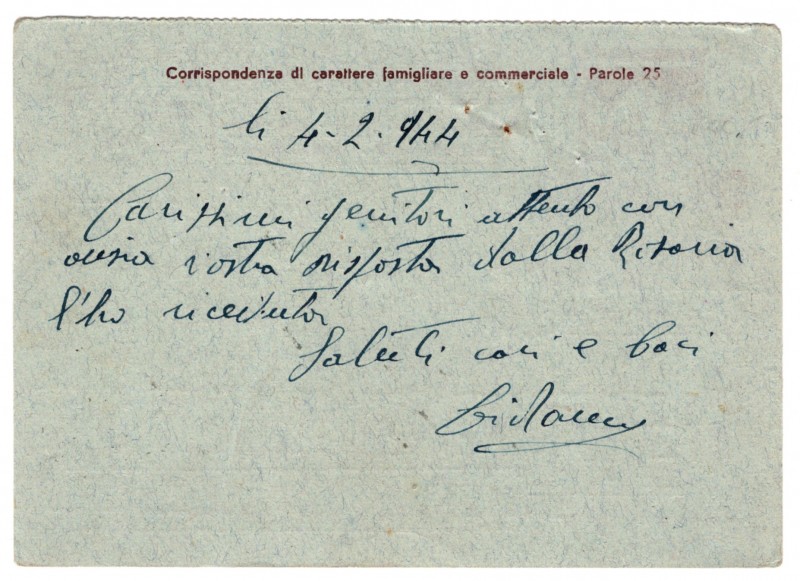 Corrispondenza di carattere famigliare e commerciale - Parole 25
li 4-2-944
Carissimi genitori attento con
ansia vostra risposta dalla Rosaria
l'ho ricevuta
Saluti cari e baci